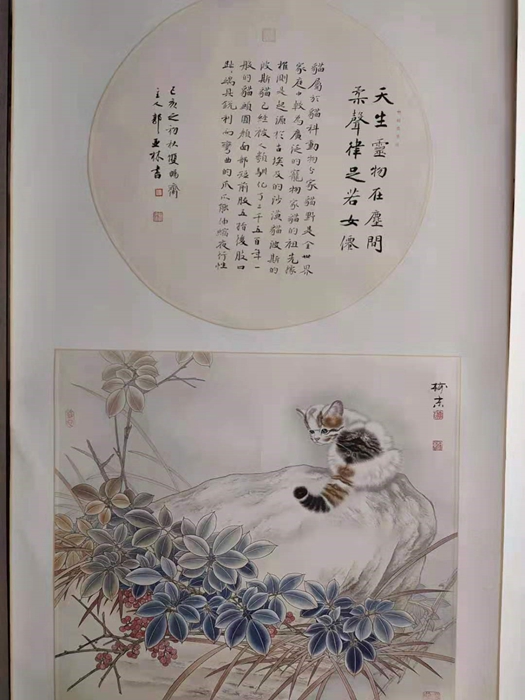 天生靈物在塵間
柔聲律足若女僊
貓屬於貓科動物分家貓野是全世界
家庭中較為廣泛的寵物家貓的祖先據
推測是起源於古埃及的沙漠貓波斯的
波斯貓已經被人類馴化了三千五百年一
般的貓頭圓顏面部短前肢五指後肢四
趾端具銳利而彎曲的爪爪能伸縮夜行性
己亥之初秋
主人郭
書